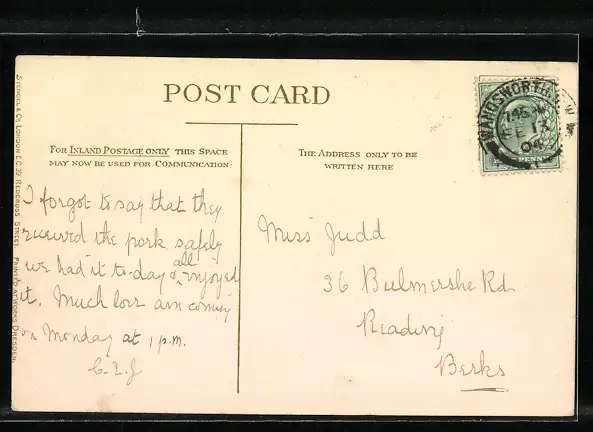 POST CARD
FOR INLAND POSTAGE ONLY THIS SPACE
MAY NOW BE USED FOR COMMUNICATION:
THE ADDRESS ONLY TO BE
WRITTEN HERE
STENGEL & Co, LONDON E.C. 39 REDCROSS STREET. PRINTED AT WORKS DRESDEN
WANDSWORTH S.W.
FE 13
04
PENNY
I forgot to say that they
received the pork safely
we had it to-day & all enjoyed
it. Much love am coming
on Monday at 1 p.m.
Miss Judd
36 Bulmershe Rd.
Reading
Berks